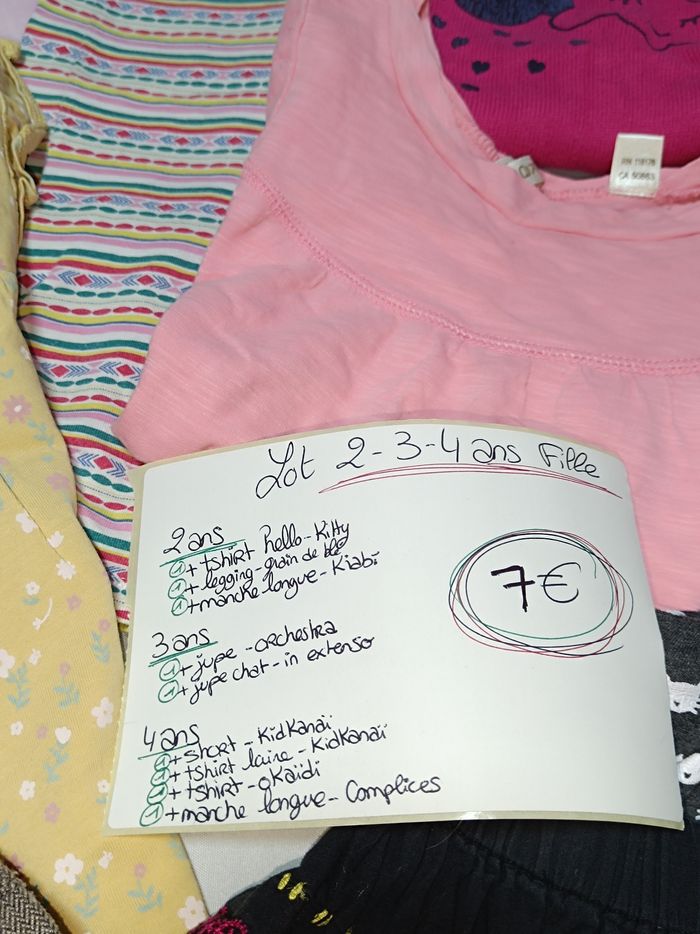 RN 119178
CA 50883
Lot 2-3-4 ans Fille
2 ans
1 + tshirt hello-Kitty
1 + legging-grain de blé
1 + manche longue-Kiabi
7€
3 ans
1 + jupe - orchestra
1 + jupe chat - in extenso
4 ans
1 + short - Kidkanaï
1 + tshirt laine - Kidkanaï
1 + tshirt - okaïdi
1 + manche longue - Complices